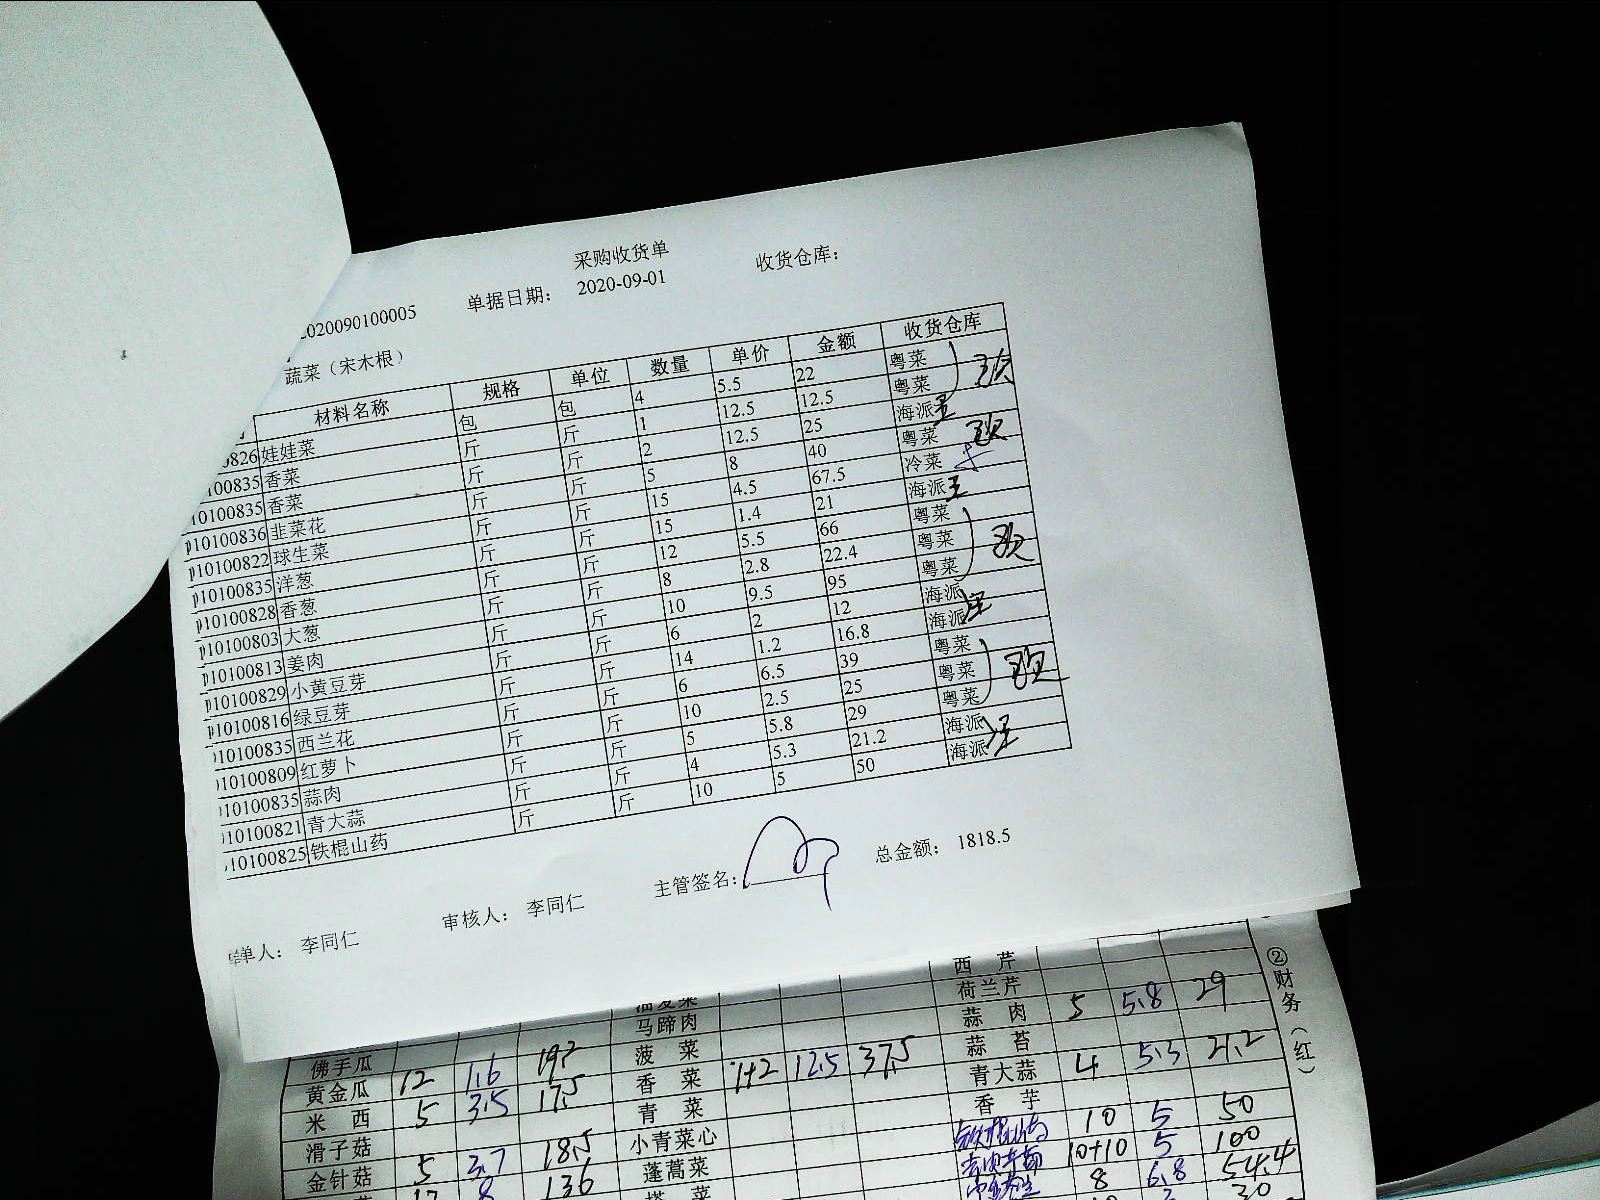 采购收货单
2020090100005 单据日期： 2020-09-01 收货仓库：
蔬菜（宋木根）
材料名称 规格 单位 数量 单价 金额 收货仓库
0826 娃娃菜 包 包 4 5.5 22 粤菜
100835 香菜 斤 斤 1 12.5 12.5 粤菜
10100835 香菜 斤 斤 2 12.5 25 海派
10100836 韭菜花 斤 斤 5 8 40 粤菜
10100822 球生菜 斤 斤 15 4.5 67.5 冷菜
10100835 洋葱 斤 斤 15 1.4 21 海派
10100828 香葱 斤 斤 12 5.5 66 粤菜
10100803 大葱 斤 斤 8 2.8 22.4 粤菜
10100813 姜肉 斤 斤 10 9.5 95 粤菜
10100829 小黄豆芽 斤 斤 6 2 12 海派
10100816 绿豆芽 斤 斤 14 1.2 16.8 海派
10100835 西兰花 斤 斤 6 6.5 39 粤菜
10100809 红萝卜 斤 斤 10 2.5 25 粤菜
10100835 蒜肉 斤 斤 5 5.8 29 粤菜
10100821 青大蒜 斤 斤 4 5.3 21.2 海派
10100825 铁棍山药 斤 斤 10 5 50 海派
单人： 李同仁 审核人： 李同仁 主管签名： 总金额： 1818.5
西芹
荷兰芹
马蹄肉 蒜肉 5 5.8 29
佛手瓜 菠菜 蒜苔
黄金瓜 12 1.6 19.2 香菜 1+2 12.5 37.5 青大蒜 4 5.3 21.2
米西 5 3.5 17.5 青菜 香芋
滑子菇 小青菜心 铁棍山药 10 5 50
金针菇 5 3.7 18.5 蓬蒿菜 10+10 5 100
8 136 8 6.8 54.4
30
②财务（红）